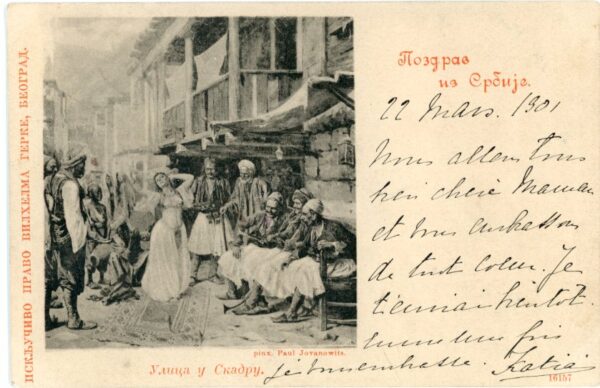 ИСКЉУЧИВО ПРАВО ВИЛХЕЛМА ГЕРКЕ, БЕОГРАД.
Поздрав
из Србије.
22 Mars. 1901
Nous allons tous
bien chère Maman
et vous embrassons
de tout coeur. Je
t'écrirai bientôt
une fois
Je vous embrasse. Katia
pinx. Paul Jovanowits.
Улица у Скадру.
16157